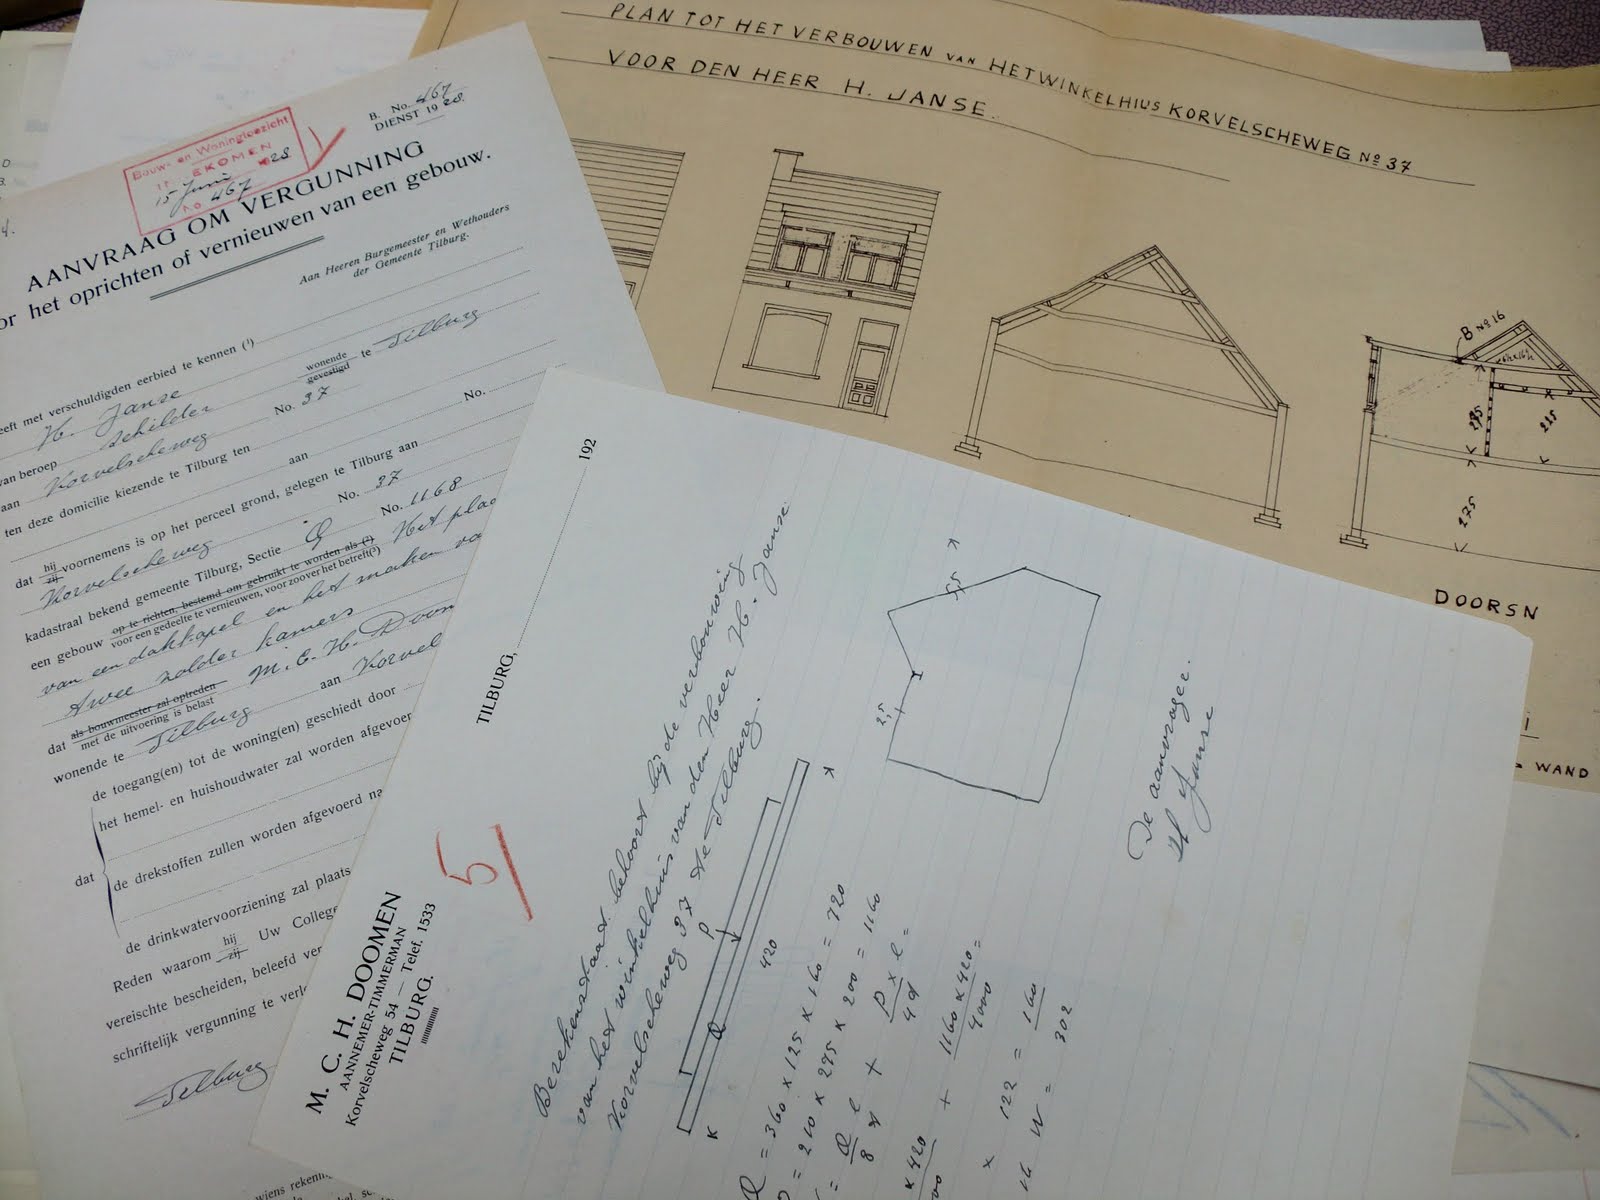 B. No. 467
DIENST 1928.
Bouw- en Woningtoezicht
15 Juni 28
No 467
AANVRAAG OM VERGUNNING
het oprichten of vernieuwen van een gebouw.
Aan Heeren Burgemeester en Wethouders
der Gemeente Tilburg.
met verschuldigden eerbied te kennen (¹)
H. Janse wonende gevestigd te Tilburg
van beroep schilder
aan Korvelscheweg No. 37
ten deze domicilie kiezende te Tilburg ten
aan No.
dat hij zij voornemens is op het perceel grond, gelegen te Tilburg aan
Korvelscheweg No. 37
kadastraal bekend gemeente Tilburg, Sectie No. 1168
een gebouw op te richten, bestemd om gebruikt te worden als (²)
voor een gedeelte te vernieuwen, voor zoover het betreft(³) Het
van een dakkapel en het maken
twee zolder kamers
dat als bouwmeester zal optreden
met de uitvoering is belast
wonende te Tilburg aan Korvel
de toegang(en) tot de woning(en) geschiedt door
het hemel- en huishoudwater zal worden
dat de drekstoffen zullen worden afgevoerd
de drinkwatervoorziening zal
Reden waarom hij zij Uw College
vereischte bescheiden, beleefd
schriftelijk vergunning te
Tilburg
PLAN TOT HET VERBOUWEN VAN HETWINKELHIUS KORVELSCHEWEG No 37
VOOR DEN HEER H. JANSE.
B No 16
295
215
275
DOORSN
WAND
M. C. H. DOOMEN
AANNEMER-TIMMERMAN
Korvelscheweg 54 — Telef. 1533
TILBURG.
5
TILBURG, 192
Berekenstaat behoort bij de verbouwing
van het winkelhuis van den Heer H. Janse
Korvelscheweg 37 te Tilburg.
P
Q
420
2,5
Q = 360 x 125 x 160 = 720
P = 210 x 295 x 200 = 1160
Q l
8 + P x l =
4
x 420 + 1160 x 420 =
4000
x 122 = 160
W = 302
De aanvrager.
H Janse